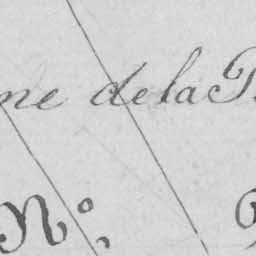 ne de la
N.º